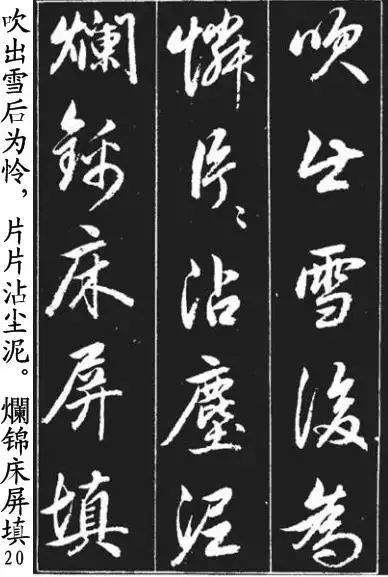 吹出雪後為
憐片〻沾塵泥
爛錦床屏填
吹出雪后为怜，片片沾尘泥。爛锦床屏填20